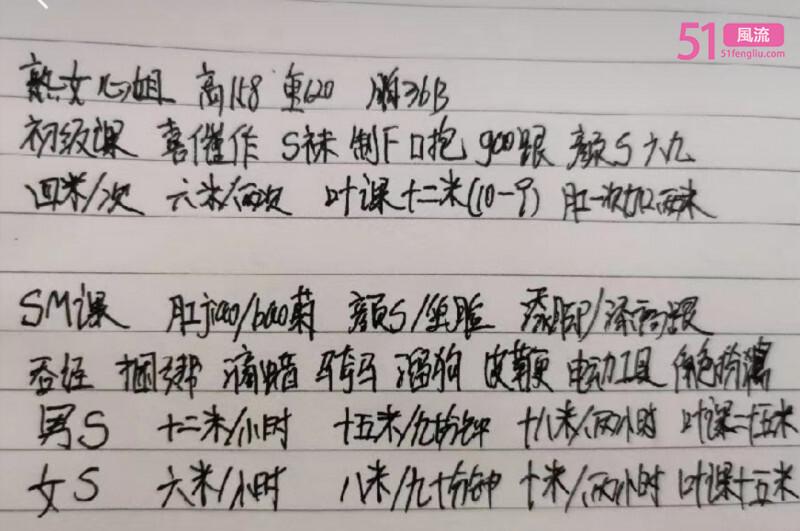 51風流
51fengliu.com
熟女心姐 高158 重620 胸36B
初级课 喜催作 S袜 制F 口抱 gao跟 颜S 六九
四米/次 六米/两次 叶课十二米(10-9) 肛一次加两米
SM课 肛jiao/bao菊 颜S/坐脸 添脚/添高跟
吞经 捆绑 滴蜡 骑马 溜狗 皮鞭 电动工具 角色扮演
男S 十二米/小时 十五米/九十分钟 十八米/两小时 叶课二十五米
女S 六米/小时 八米/九十分钟 十米/两小时 叶课十五米